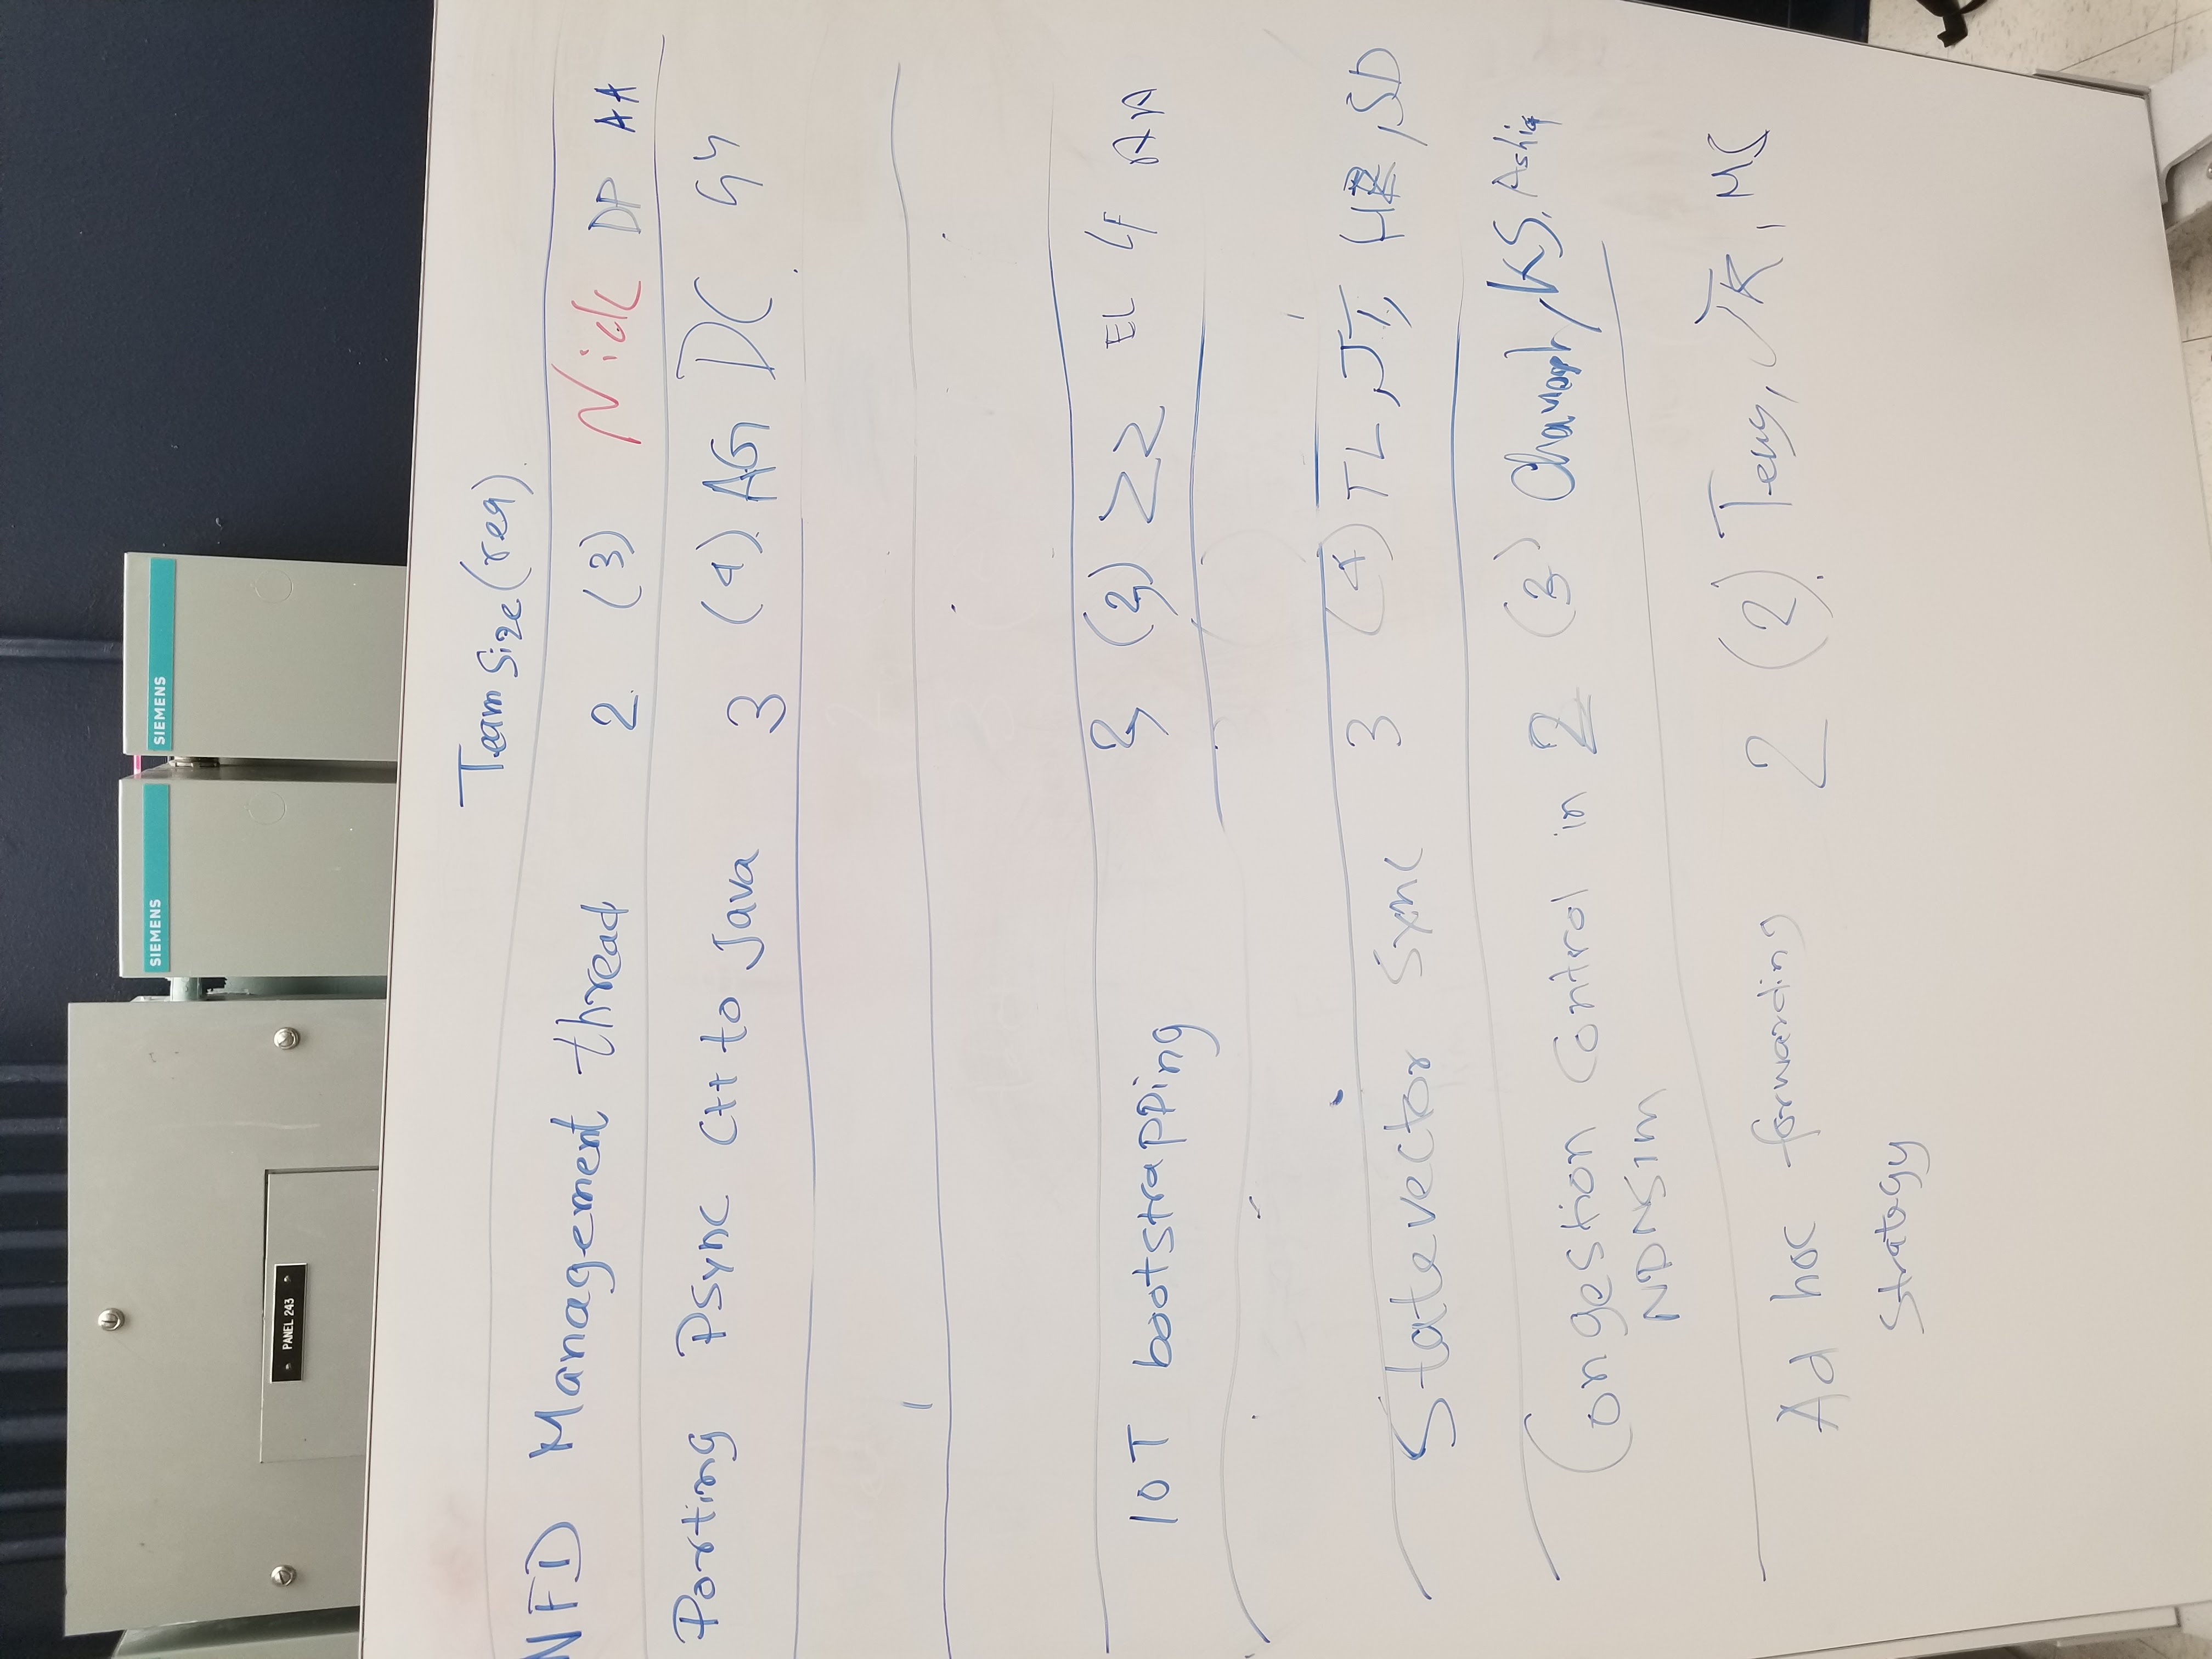 SIEMENS
SIEMENS
PANEL 243
Team Size (req)
NFD Management thread 2 (3) Nick DP AA
Porting Psync C++ to Java 3 (4) AG DC
IOT bootstrapping ZZ EL LF AA
Statevector Sync 3 (4) TL, JT, SD
Congestion Control in 2 (3) KS, Ashiq
NDNSIM
Ad hoc forwarding 2 (2). Teng, JK, MS
Strategy